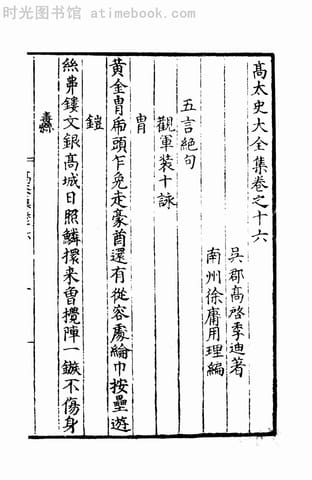 时光图书馆 - atimebook.com
高太史大全集卷之十六
吳郡高啓季迪著
南州徐庸用理編
五言絕句
觀軍裝十詠
冑
黃金冑虎頭乍免走豪酋還有從容處綸巾按壘遊
鎧
絲串鏤文銀高城日照鱗擐来曾攪陣一鏃不傷身
纛